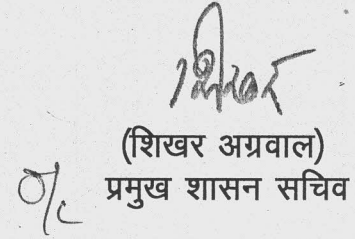 (शिखर अग्रवाल)
प्रमुख शासन सचिव